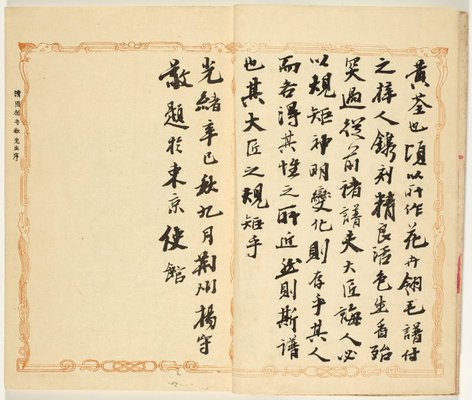 黄荃也頃以所作花卉翎毛譜付
之梓人鐫刻精良活色生香殆
突過從前諸譜夫大匠誨人必
以規矩神明變化則存乎其人
而各得其性之所近然則斯譜
也其大匠之規矩乎
光緒辛巳秋九月荊州楊守
敬題於東京使館
清國楊守敬先生序